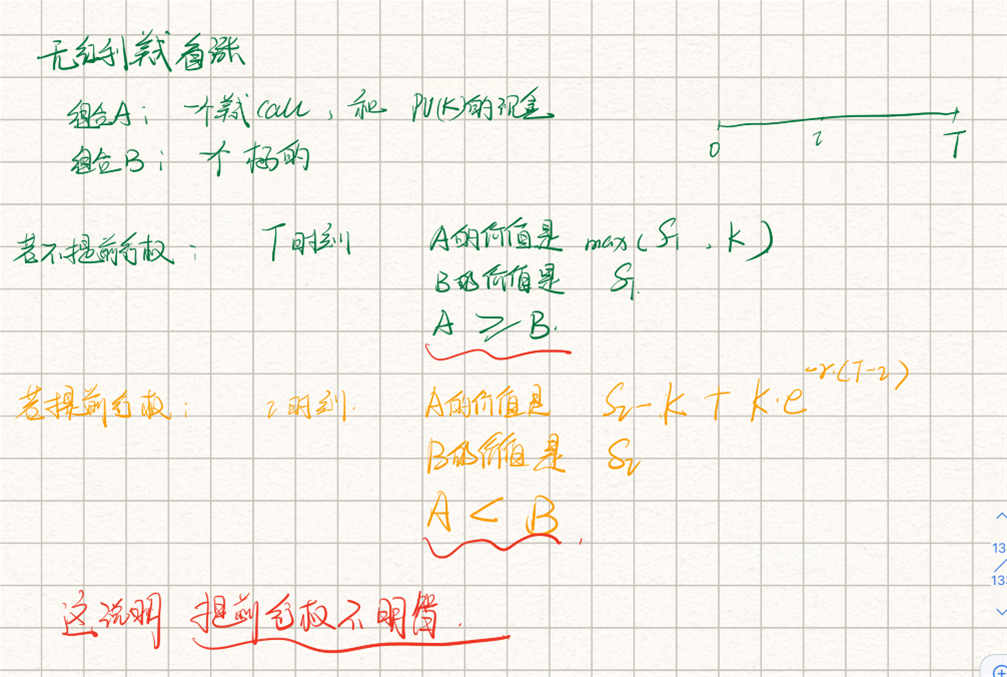 无红利美式看涨
组合A: 一个美式call, 和 PV(K)的现金
组合B: 一个标的
0 τ T
若不提前行权: T时刻 A的价值是 max(S_T, K)
B的价值是 S_T
A ≥ B.
若提前行权: τ时刻. A的价值是 S_τ - K + K·e^{-r·(T-τ)}
B的价值是 S_τ
A < B.
这说明 提前行权不明智.
13
13